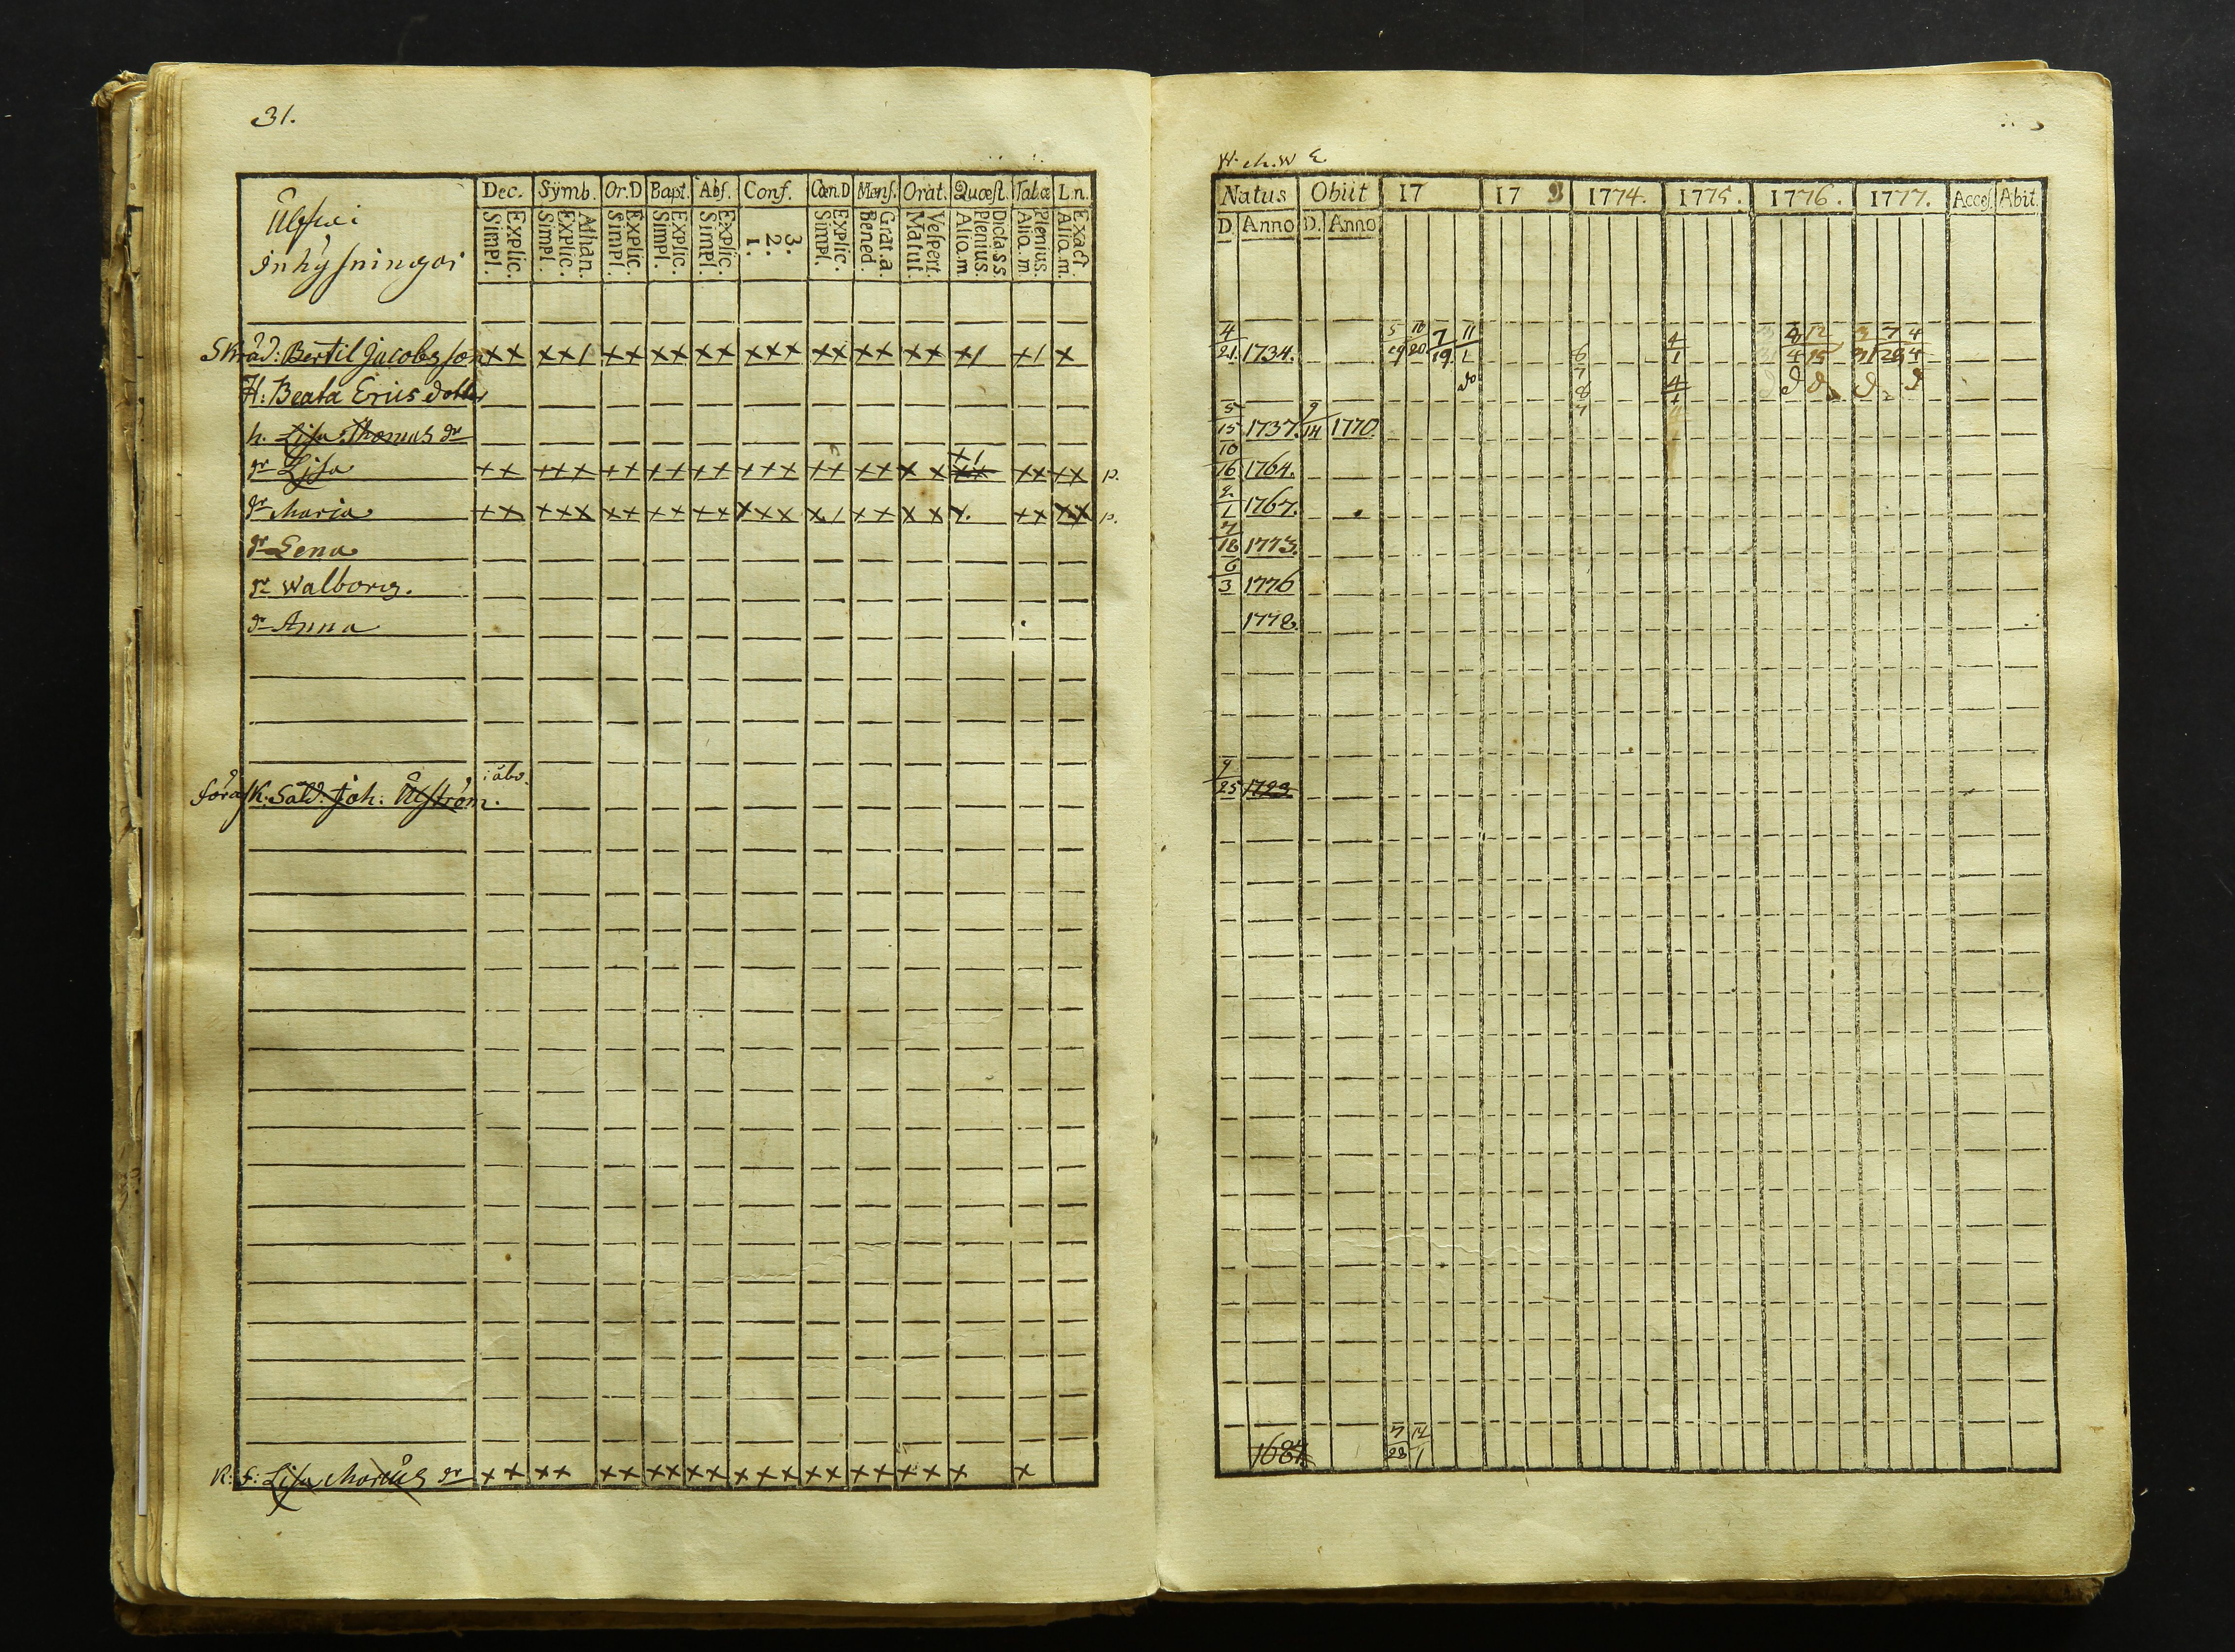 31.
Inhysningar
Dec. Symb. Or.D Bapt. Abs. Conf. Cœn.D Mens. Orat. Quæst. Tabæ L.n.
Explic. Simpl. Athan. Explic. Simpl. Explic. Simpl. Explic. Simpl. Explic. Simpl. 3. 2. 1. Explic. Simpl. Grat.a. Bened. Vespert. Matut. Dictass. Plenius. Aliq.m. Plenius. Aliq.m. Exact. Aliq.m.
Skräd: Bertil Jacobsson ×× ××/ ×× ×× ×× ××× ×× ×× ×× ×/ ×/ ×
H: Beata Erics dotter
h. Lisa Thomas dr
dr Lisa ×× ××× ×× ×× ×× ××× ×× ×× ×× ×/ ×× ×× ×× p.
dr Maria ×× ××× ×× ×× ×× ××× ×/ ×× ×× ×. ×× ×× p.
dr Lena
dr Walborg.
dr Anna
i åbo.
K. Sold. Joh: Ålström.
Lisa Marcus dr ×× ×× ×× ×× ×× ××× ×× ×× ×× × ×
Natus Obiit 17 17 3 1774. 1775. 1776. 1777. Acces. Abit.
D. Anno D. Anno
4/21. 1734. 5/29 10/20. 7/19. 11/1 4/1
do
5/15 1737. 9/14 1770
10/16 1764.
2/1 1767.
7/18 1773.
6/3 1776
1778.
9/25 1723
1684 7/28 12/1